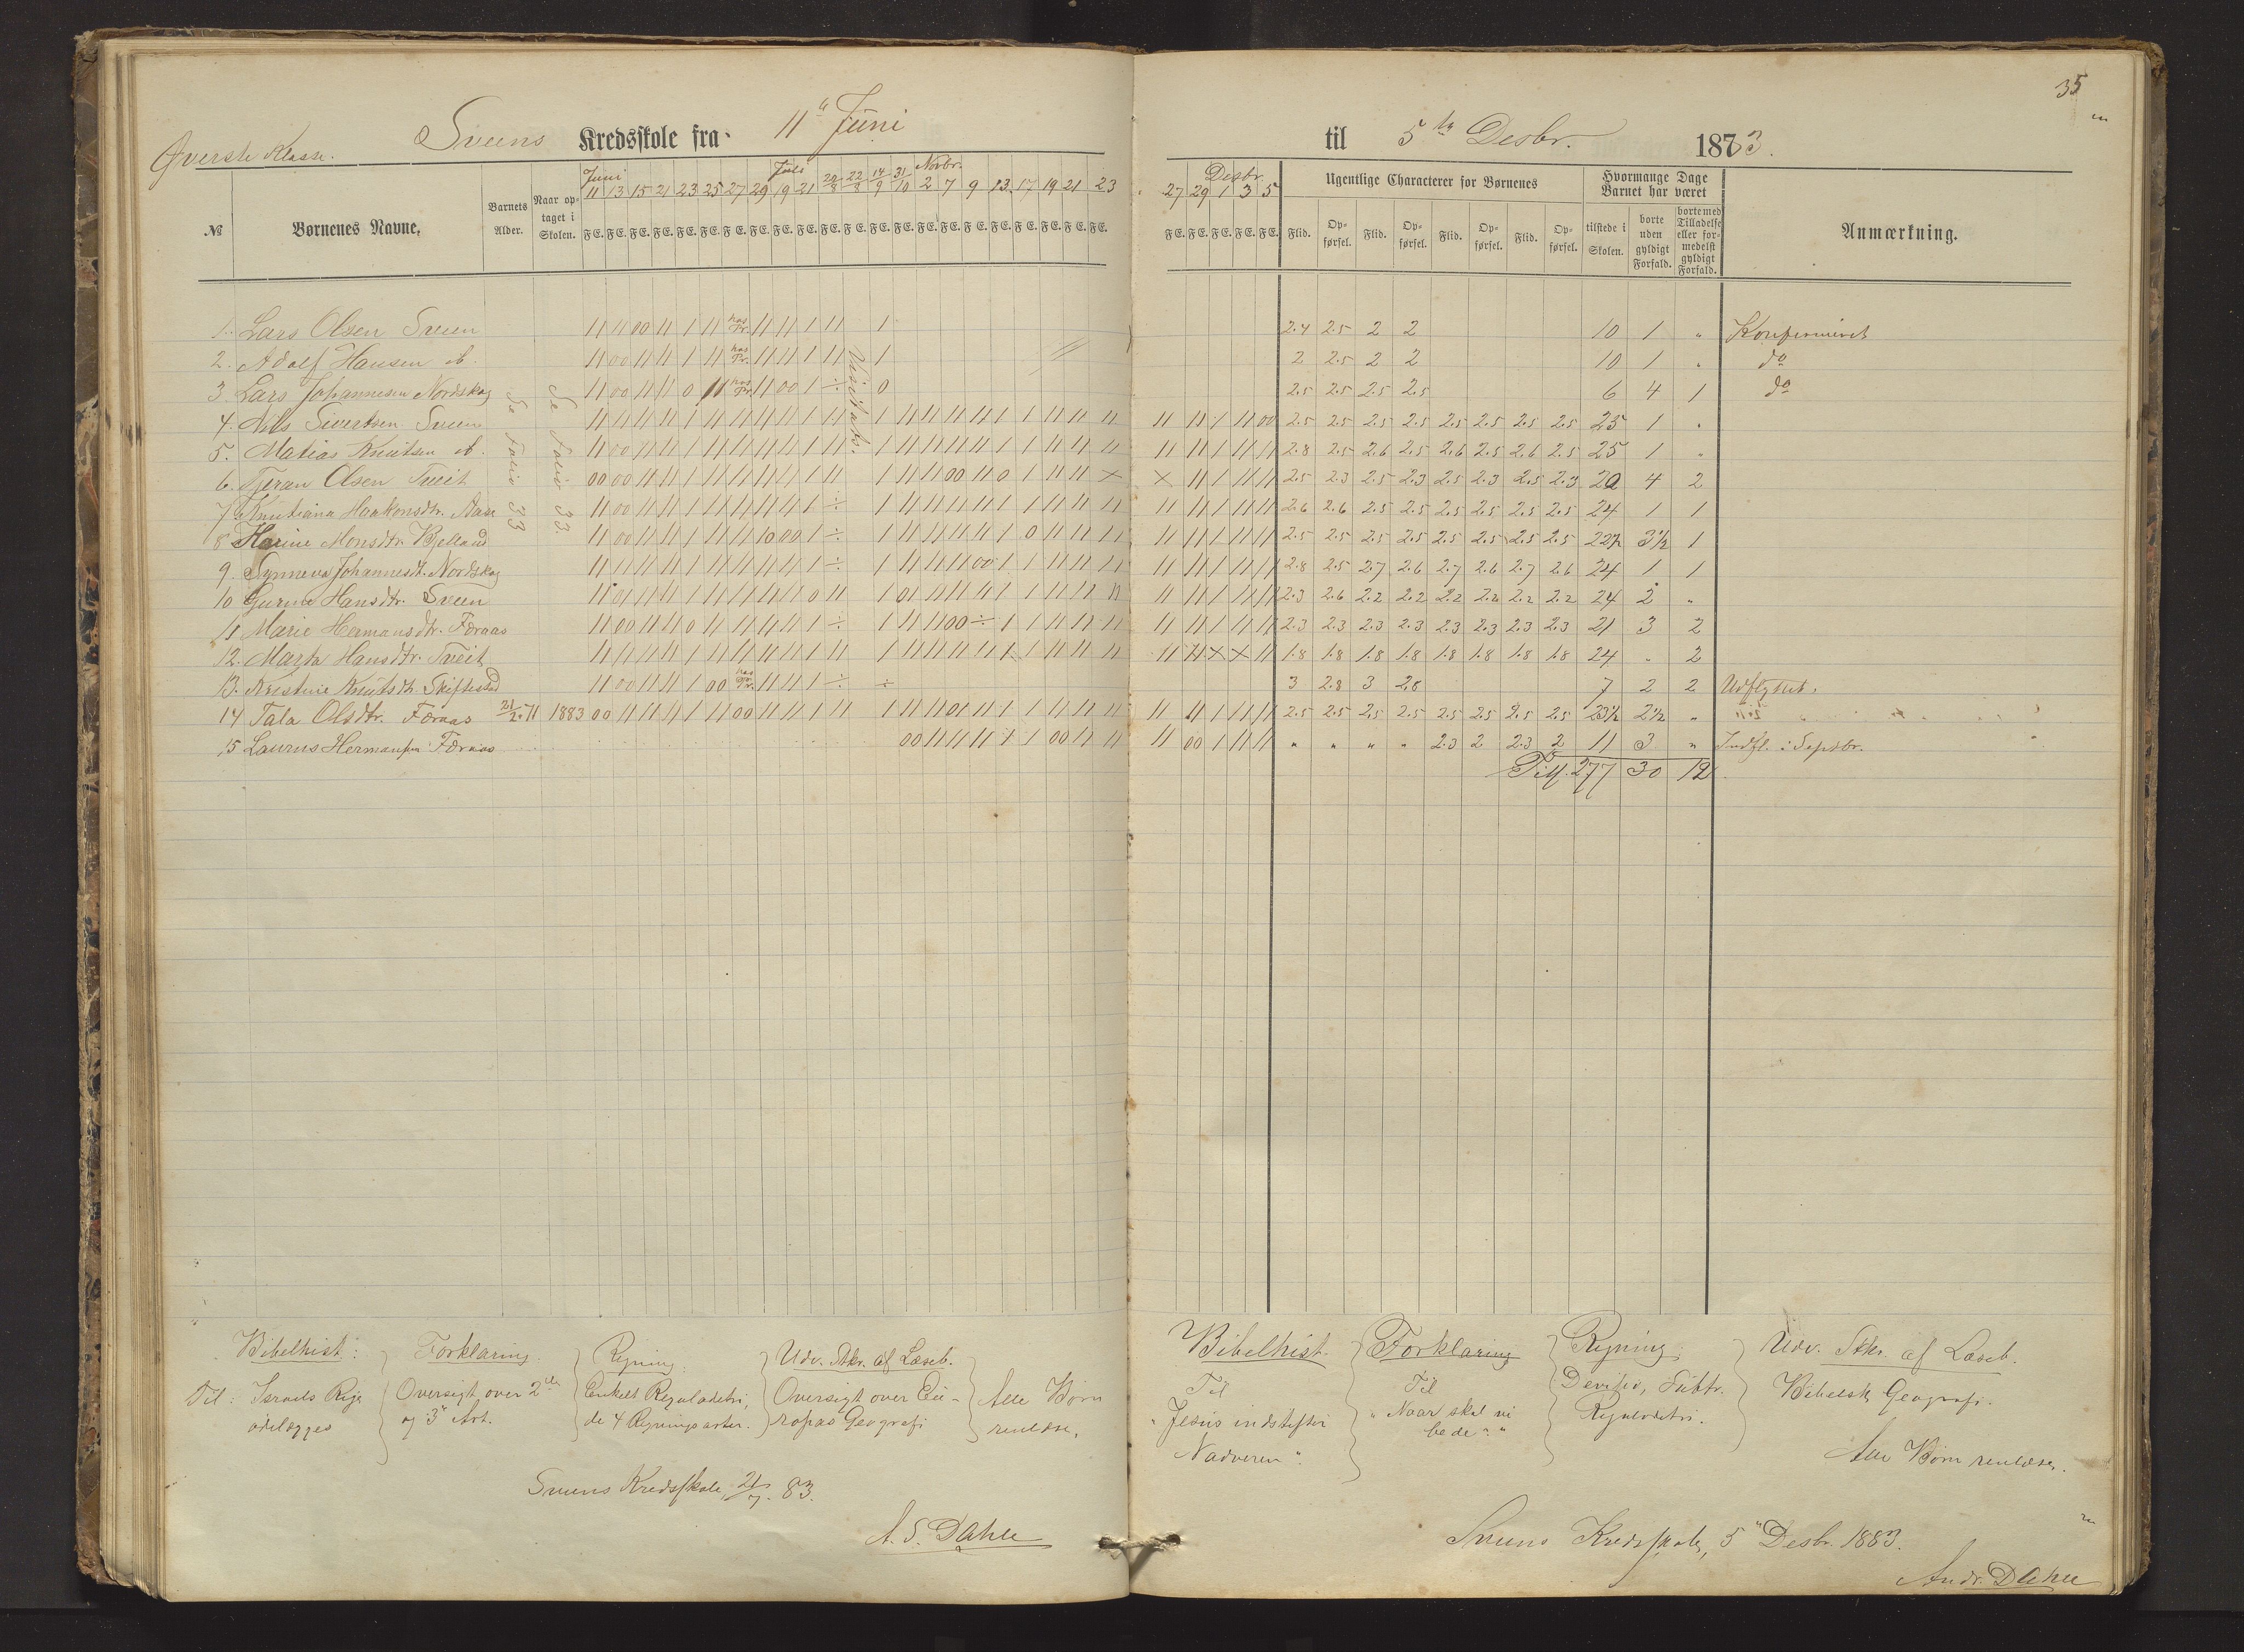 35
Øverste Klasse.
Sveens Kredsskole fra 11te Juni til 5te Desbr. 1883.
№ Børnenes Navne. Barnets Alder. Naar optaget i Skolen.
Juni 11 13 15 21 23 25 27 29 Juli 19 21 20/8 22/8 14/9 31/10 Novbr. 2 7 9 13 17 19 21 23 27 29 Desbr. 1 3 5
F E. F E. F E. F E. F E. F E. F E. F E. F E. F E. F E. F E. F E. F E. F E. F E. F E. F E. F E. F E. F E. F E. F E. F E. F E. F E. F E.
Ugentlige Characterer for Børnenes
Flid. Opførsel. Flid. Opførsel. Flid. Opførsel. Flid. Opførsel.
Hvormange Dage Barnet har været
tilstede i Skolen. borte uden gyldigt Forfald. borte med Tilladelse eller formedelst gyldigt Forfald.
Anmærkning.
Se Folio 33
Se Folio 33.
Visitats.
1. Lars Olsen Sveen 11 11 00 11 1 11 hos Pr. 11 11 1 11 1 2.4 2.5 2 2 10 1 " Konfirmeret
2. Adolf Hansen do. 11 00 11 11 1 11 hos Pr. 11 11 1 11 1 2 2.5 2 2 10 1 " do
3. Lars Johannesen Nordskog 11 00 11 11 0 11 hos Pr. 11 00 1 ÷ 0 2.5 2.5 2.5 2.5 6 4 1 do
4. Nils Sivertsen Sveen 2.5 2.5 2.5 2.5 2.5 2.5 2.5 2.5 25 1 "
5. Matias Knutsen do. 2.8 2.5 2.6 2.5 2.6 2.5 2.6 2.5 25 1 "
6. Tjeran Olsen Tveit 2.5 2.3 2.5 2.3 2.5 2.3 2.5 2.3 20 4 2
7. Haakonsdtr. Aase 2.6 2.6 2.5 2.5 2.5 2.5 2.5 2.5 24 1 1
8 Karine Monsdtr. Bjelland 2.5 2.5 2.5 2.5 2.5 2.5 2.5 2.5 22½ 3½ 1
9. Synneva Johannesdt. Nordskog 2.8 2.5 2.7 2.6 2.7 2.6 2.7 2.6 24 1 1
10 Gurine Hansdtr. Sveen 2.3 2.6 2.2 2.2 2.2 2.2 2.2 2.2 24 2 "
11 Marie Hermansdtr. Færaas 2.3 2.3 2.3 2.3 2.3 2.3 2.3 2.3 21 3 2
12. Marta Hansdtr. Tveit 1.8 1.8 1.8 1.8 1.8 1.8 1.8 1.8 24 " 2
13. Kristine Knutsdt. Skiftestad 11 00 11 11 1 00 hos Pr. 11 11 1 ÷ ÷ 3 2.8 3 2.8 7 2 2 Udflyttet.
14 Tala Olsdtr. Færaas 21/2 71 1883 2.5 2.5 2.5 2.5 2.5 2.5 2.5 2.5 23½ 2½ "
15 Laurus Hermansen Færaas 00 11 11 11 1 1 00 11 11 11 00 1 11 11 " " " " 2.3 2 2.3 2 11 3 " Indfl. i Septbr.
Till. 277 30 12
Bibelhist: Forklaring. Regning. Udv. Stkr. af Læseb.
Til: Israels Rige Oversigt over 2den Enkelt Reguladetri, Oversigt over Eu- Alle Børn
ødelægges og 3" Art. de 4 Regningsarter. ropas Geografi renlæse.
Sveens Kredsskole, 21/7. 83.
A. S. Dahle
Bibelhist. Forklaring Regning: Udv. Stkr. af Læseb.
Til Til Devisio, Subtr. Bibelsk Geografi.
"Jesus indstifter "Naar skal vi Reguladetri.
Nadveren". bede?"
Alle Børn renlæse.
Sveens Kredsskole, 5" Desbr. 1883.
Andr. Dahle